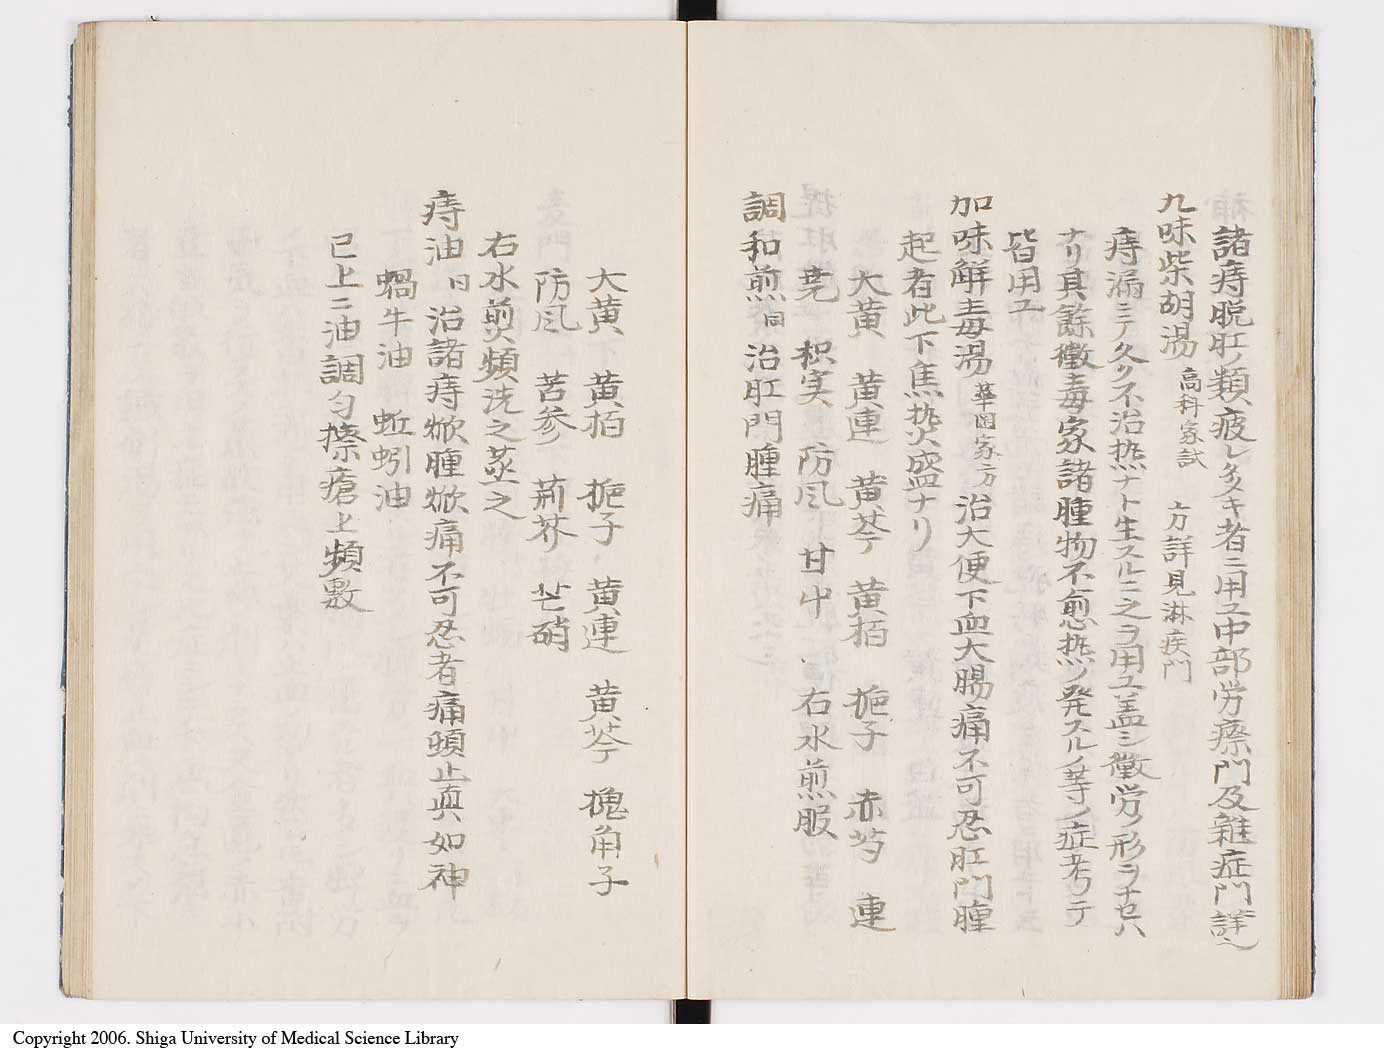 諸痔脱肛ノ類疲レ多キ者ニ用ユ中部労瘵門及雜症門詳之
九味柴胡湯 高科家試 方詳見淋疾門
痔漏ニテ久ク不治熱ナト生スルニ之ヲ用ユ盖シ黴労ノ形ヲナセハ
ナリ其餘黴毒家諸腫物不愈熱ヲ発スル等ノ症考テ
皆用ユ
加味解毒湯 華岡家方 治大便下血大腸痛不可忍肛門腫
起者此下焦熱盛ナリ
大黄 黄連 黄芩 黄柏 梔子 赤芍 連
尭 枳実 防风 甘中 右水煎服
調和煎 同 治肛門腫痛
大黄 黄柏 梔子 黄連 黄芩 槐角子
防风 苦参 荊芥 芒硝
右水煎頻洗之蒸之
痔油 日 治諸痔焮腫焮痛不可忍者痛頭止真如神
蝸牛油 蚯蚓油
已上二油調匀擦瘡上頻敷
Copyright 2006. Shiga University of Medical Science Library